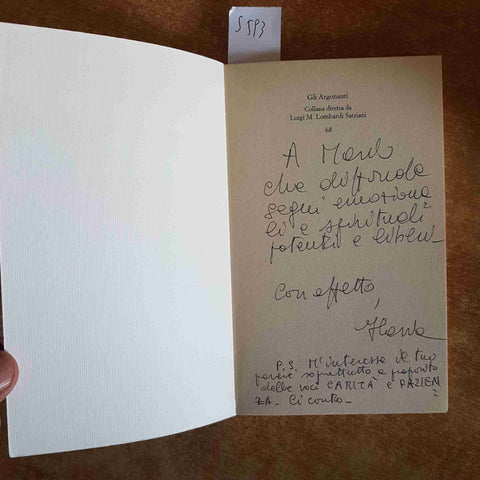 S593
Gli Argonauti
Collana diretta da
Luigi M. Lombardi Satriani
68
A
che diffonde
segni emotiona
li e spirituali
potenti e liberi_
Con affetto,
P.S. M'interessa il tuo
parere soprattutto a proposito
delle voci CARITÀ e PAZIEN
ZA_ Ci conto_